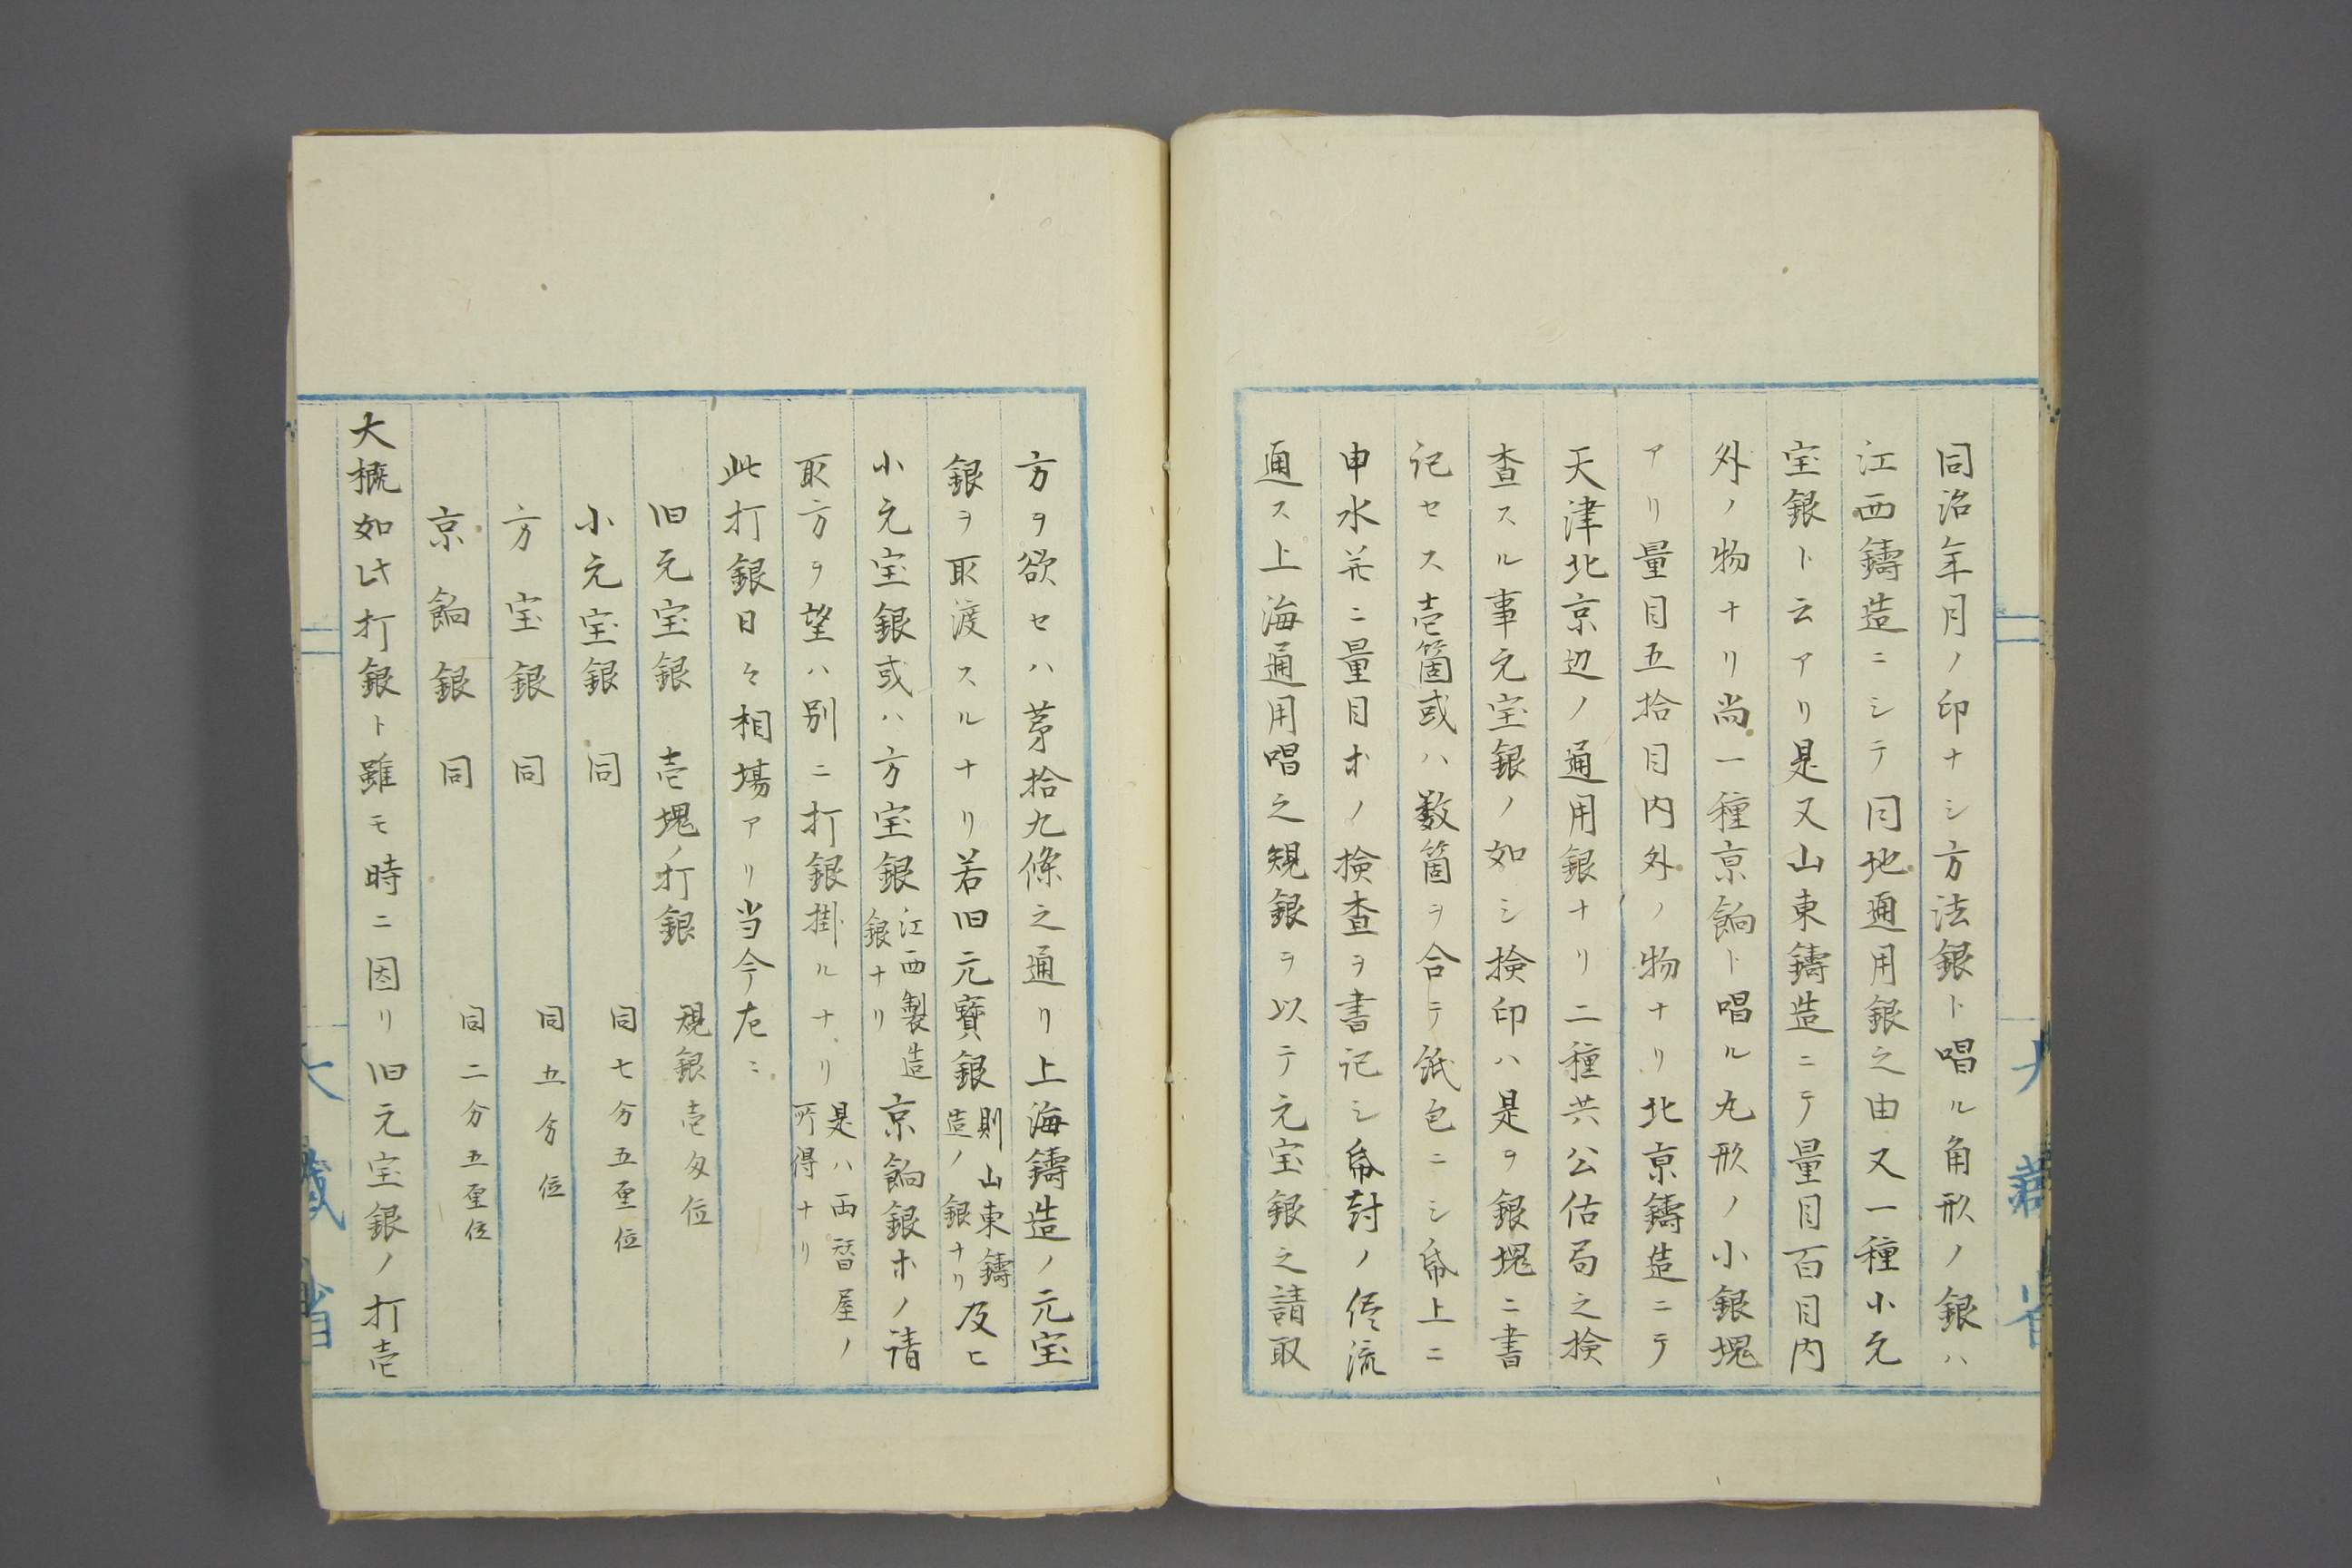 同治年月ノ印ナシ方法銀ト唱ル角形ノ銀ハ
江西鋳造ニシテ同地通用銀之由又一種小元
宝銀ト云アリ是又山東鋳造ニテ量目百目内
外ノ物ナリ尚一種京餉ト唱ル丸形ノ小銀塊
アリ量目五拾目内外ノ物ナリ北京鋳造ニテ
天津北京辺ノ通用銀ナリ二種共公估局之検
査スル事元宝銀ノ如シ検印ハ是ヲ銀塊ニ書
記セス壱箇或ハ数箇ヲ合テ紙包ニシ帋上ニ
申水并ニ量目ホノ検査ヲ書記シ帋封ノ侭流
通ス上海通用唱之規銀ヲ以テ元宝銀之請取
方ヲ欲セハ茅拾九條之通リ上海鋳造ノ元宝
銀ヲ取渡スルナリ若旧元寶銀則山東鋳造ノ銀ナリ及ヒ
小元宝銀或ハ方宝銀江西製造銀ナリ京餉銀ホノ請
取方ヲ望ハ別ニ打銀掛ルナリ是ハ両替屋ノ所得ナリ
此打銀日々相場アリ当今左ニ
旧元宝銀 壱塊ノ打銀 規銀壱匁位
小元宝銀 同 同七分五厘位
方宝銀 同 同五分位
京餉銀 同 同二分五厘位
大概如此打銀ト雖モ時ニ因リ旧元宝銀ノ打壱
大蔵省